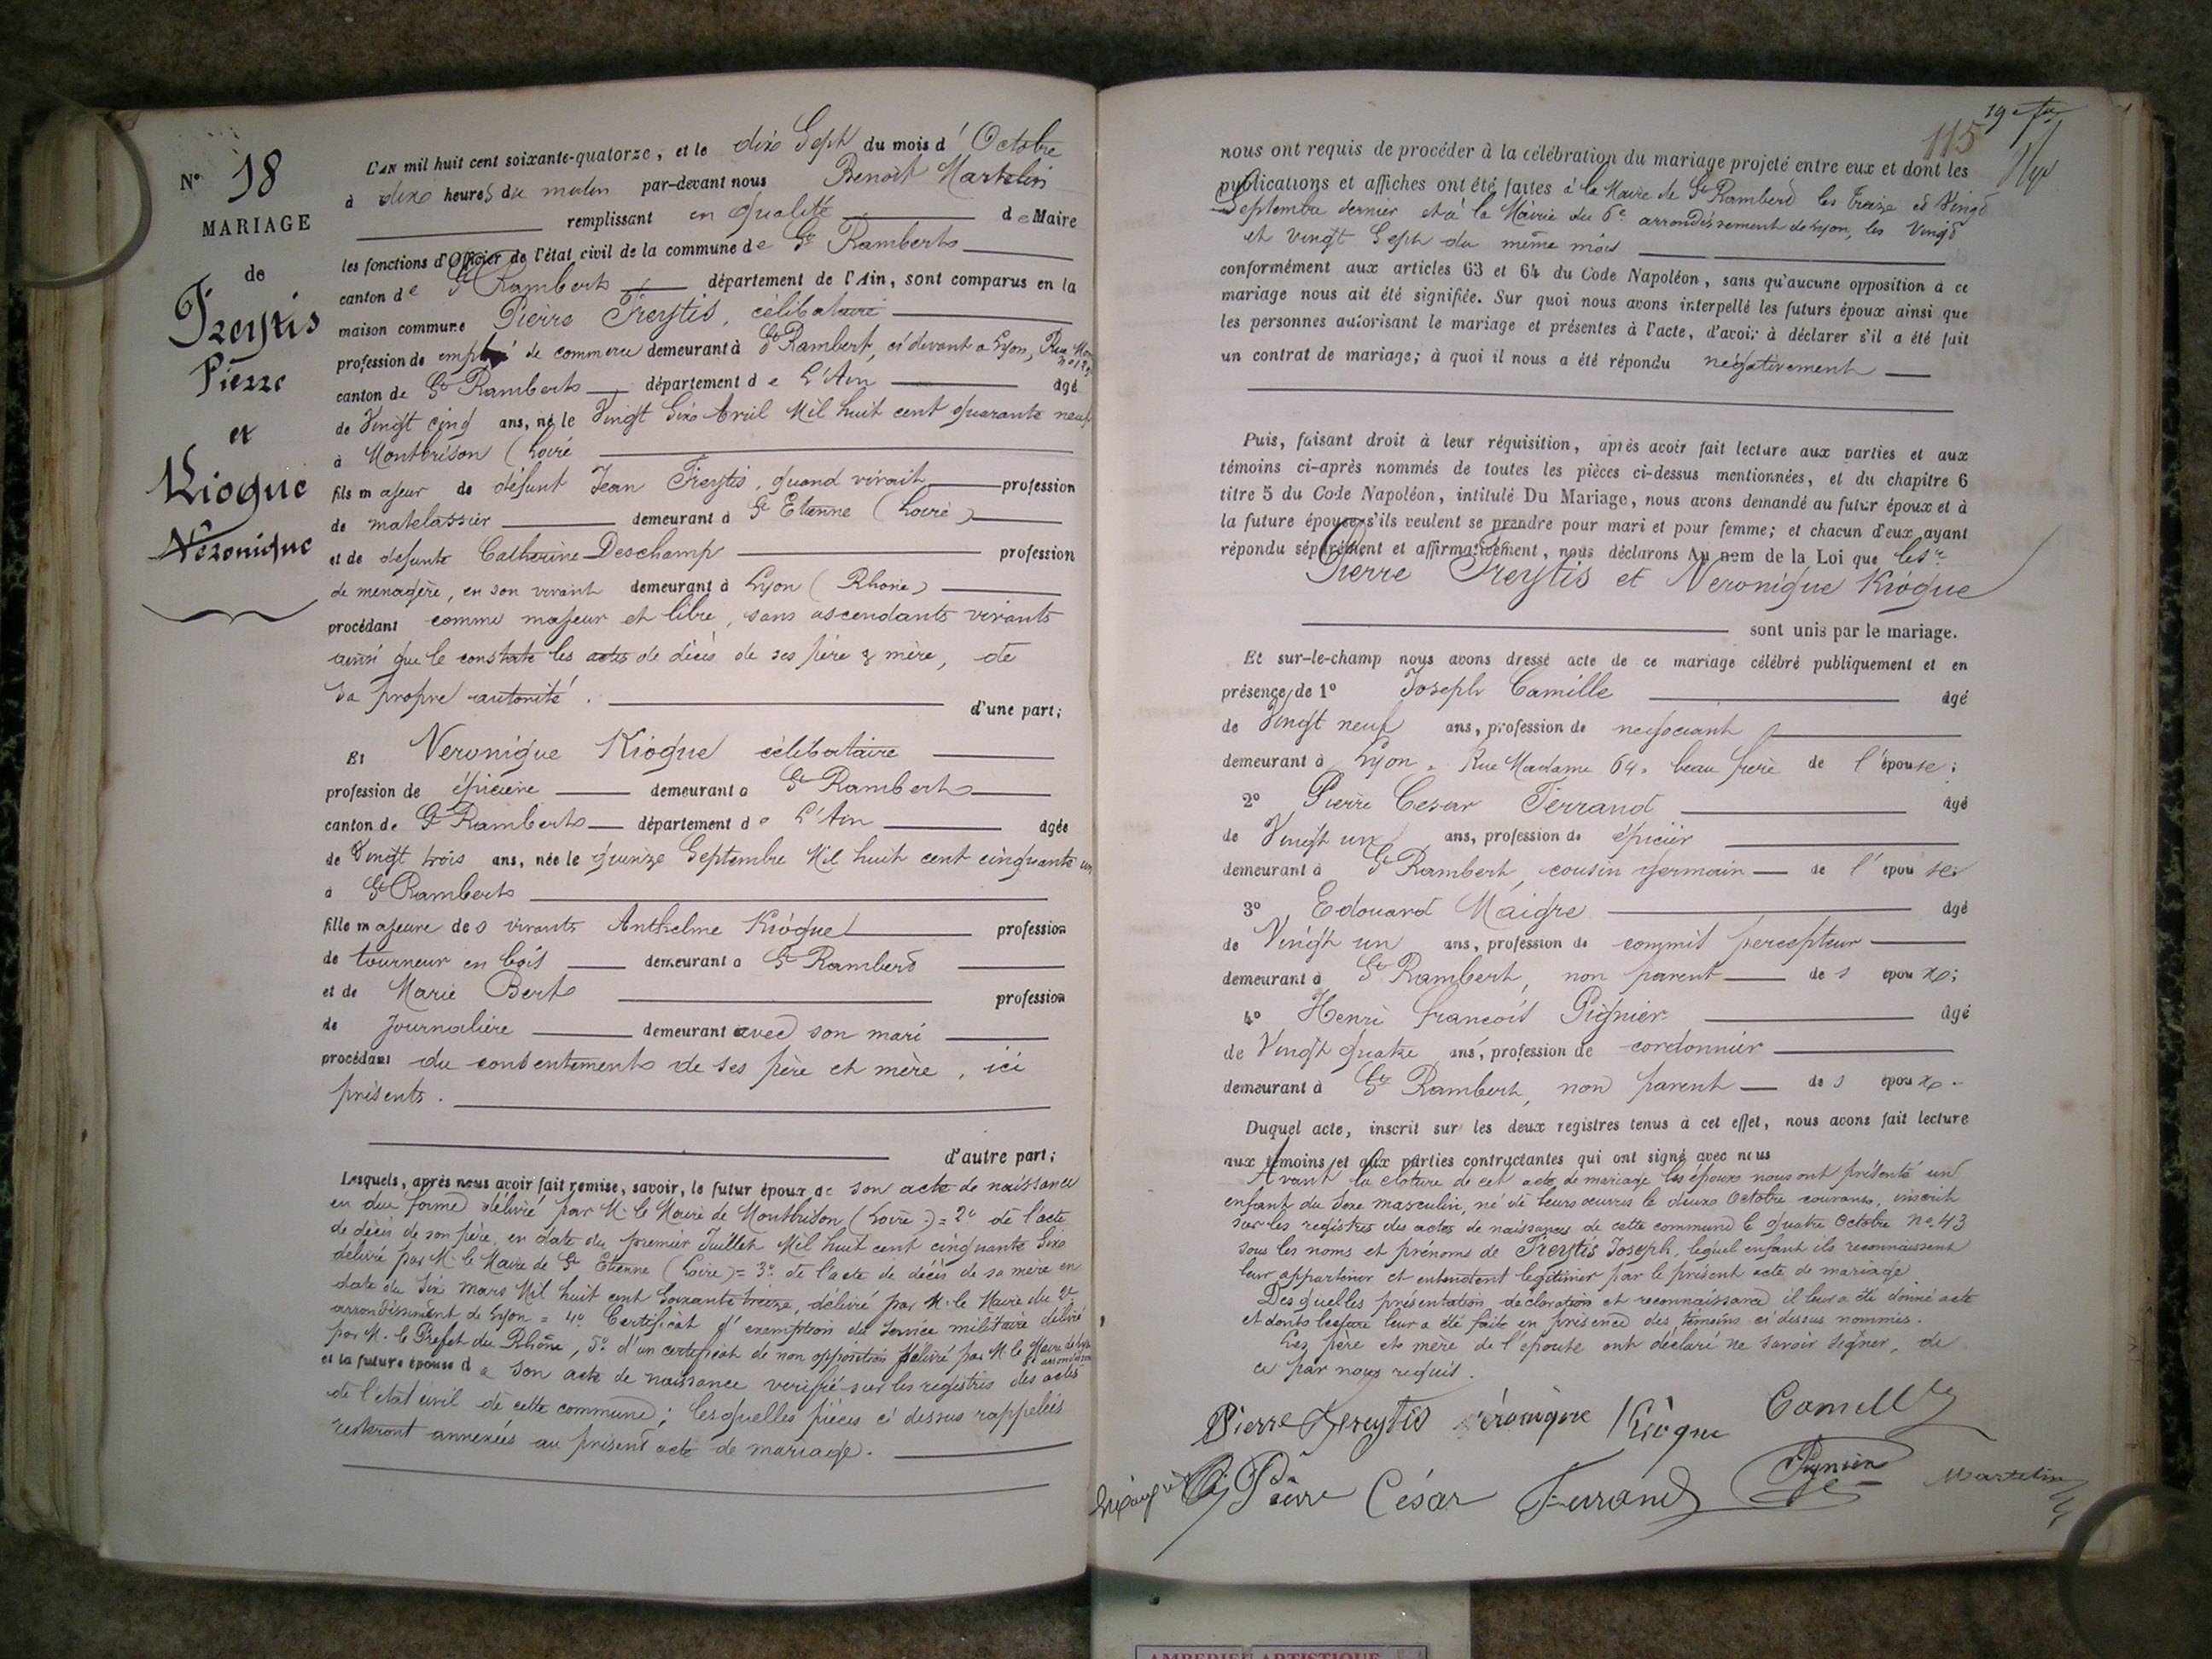 N° 18
MARIAGE
de
Freytis
Pierre
et
Kiogue
Véronique
L'AN mil huit cent soixante-quatorze, et le dix Sept du mois d'Octobre
à dix heures du matin par-devant nous Benoit Martelin
remplissant en qualité de Maire
les fonctions d'Officier de l'état civil de la commune de St Rambert
canton de St Rambert département de l'Ain, sont comparus en la
maison commune Pierre Freytis, célibataire
profession de employé de commerce demeurant à St Rambert, ci devant a Lyon, Rue
canton de St Rambert département de L'Ain âgé
de Vingt cinq ans, né le Vingt Six Avril Mil huit cent quarante neuf
à Montbrison (Loire
fils majeur de défunt Jean Freytis, quand vivait profession
de matelassier demeurant à St Etienne (Loire)
et de defunte Catherine Deschamp profession
de menagère, en son vivant demeurant à Lyon (Rhone)
procédant comme majeur et libre, sans ascendants vivants
ainsi que le constate les actes de décès de ses père & mère, de
sa propre autorité. d'une part;
Et Veronique Kiogue célibataire
profession de épicière demeurant à St Rambert
canton de St Rambert département de L'Ain âgée
de Vingt trois ans, née le quinze Septembre Mil huit cent cinquante un
à St Rambert
fille majeure des vivants Anthelme Kiogue profession
de tourneur en bois demeurant à St Rambert
et de Marie Bert profession
de Journalière demeurant avec son mari
procédant du consentement de ses père et mère, ici
présents.
d'autre part;
Lesquels, après nous avoir fait remise, savoir, le futur époux de son acte de naissance
en due forme délivré par M. le Maire de Montbrison (Loire) = 2° de l'acte
de décès de son père, en date du premier Juillet Mil huit cent cinquante Six
délivré par M. le Maire de St Etienne (Loire) = 3° de l'acte de décès de sa mère en
date du Six Mars Mil huit cent Soixante treize, délivré par M. le Maire du 2e
arrondissement de Lyon = 4° Certificat d'exemption du Service militaire délivré
par M. le Préfet du Rhône, 5° d'un certificat de non opposition délivré par M. le Maire de Lyon
6e arrondissement
et la future épouse de son acte de naissance verifié sur les registres des actes
de l'etat civil de cette commune; lesquelles pièces ci dessus rappelées
resteront annexées au présent acte de mariage.
115
nous ont requis de procéder à la célébration du mariage projeté entre eux et dont les
publications et affiches ont été faites à la Mairie de St Rambert les treize et Vingt
Septembre dernier et à la Mairie du 6e arrondissement de Lyon, les Vingt
et Vingt Sept du même mois
conformément aux articles 63 et 64 du Code Napoléon, sans qu'aucune opposition à ce
mariage nous ait été signifiée. Sur quoi nous avons interpellé les futurs époux ainsi que
les personnes autorisant le mariage et présentes à l'acte, d'avoir à déclarer s'il a été fait
un contrat de mariage; à quoi il nous a été répondu négativement
Puis, faisant droit à leur réquisition, après avoir fait lecture aux parties et aux
témoins ci-après nommés de toutes les pièces ci-dessus mentionnées, et du chapitre 6
titre 5 du Code Napoléon, intitulé Du Mariage, nous avons demandé au futur époux et à
la future épouse s'ils veulent se prendre pour mari et pour femme; et chacun d'eux ayant
répondu séparément et affirmativement, nous déclarons Au nom de la Loi que les
Pierre Freytis et Veronique Kiogue
sont unis par le mariage.
Et sur-le-champ nous avons dressé acte de ce mariage célébré publiquement et en
présence de 1° Joseph Camille âgé
de Vingt neuf ans, profession de negociant
demeurant à Lyon, Rue Madame 64, beau frère de l'épouse;
2° Pierre Cesar Ferrand âgé
de Vingt un ans, profession de épicier
demeurant à St Rambert, cousin germain de l'épouse;
3° Edouard Maigre âgé
de Vingt un ans, profession de commis percepteur
demeurant à St Rambert, non parent des époux;
4° Henri François Pignier âgé
de Vingt quatre ans, profession de cordonnier
demeurant à St Rambert, non parent des époux.
Duquel acte, inscrit sur les deux registres tenus à cet effet, nous avons fait lecture
aux témoins et aux parties contractantes qui ont signé avec nous
Avant la cloture de cet acte de mariage les époux nous ont présenté un
enfant du Sexe masculin, né de leurs oeuvres le deux Octobre courant, inscrit
sur les registres des actes de naissances de cette commune le quatre Octobre No 43
sous les noms et prénoms de Freytis Joseph, lequel enfant ils reconnaissent
leur appartenir et entendent légitimer par le présent acte de mariage
Desquelles présentation déclaration et reconnaissance il leur a été donné acte
et dont lecture leur a été faite en présence des témoins ci dessus nommés.
Les père et mère de l'épouse ont déclaré ne savoir signer, de
ce par nous requis.
Pierre Freytis Véronique Kiogue Camille
Pierre César Ferrand Pignier Martelin
AMBERIEU ARTISTIQUE